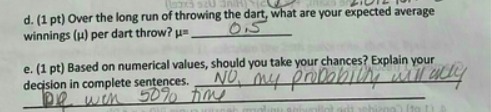 d. (1 pt) Over the long run of throwing the dart, what are your expected average
winnings (μ) per dart throw? μ= 0.5
e. (1 pt) Based on numerical values, should you take your chances? Explain your
decision in complete sentences. NO, my probability will only
be win 50% time